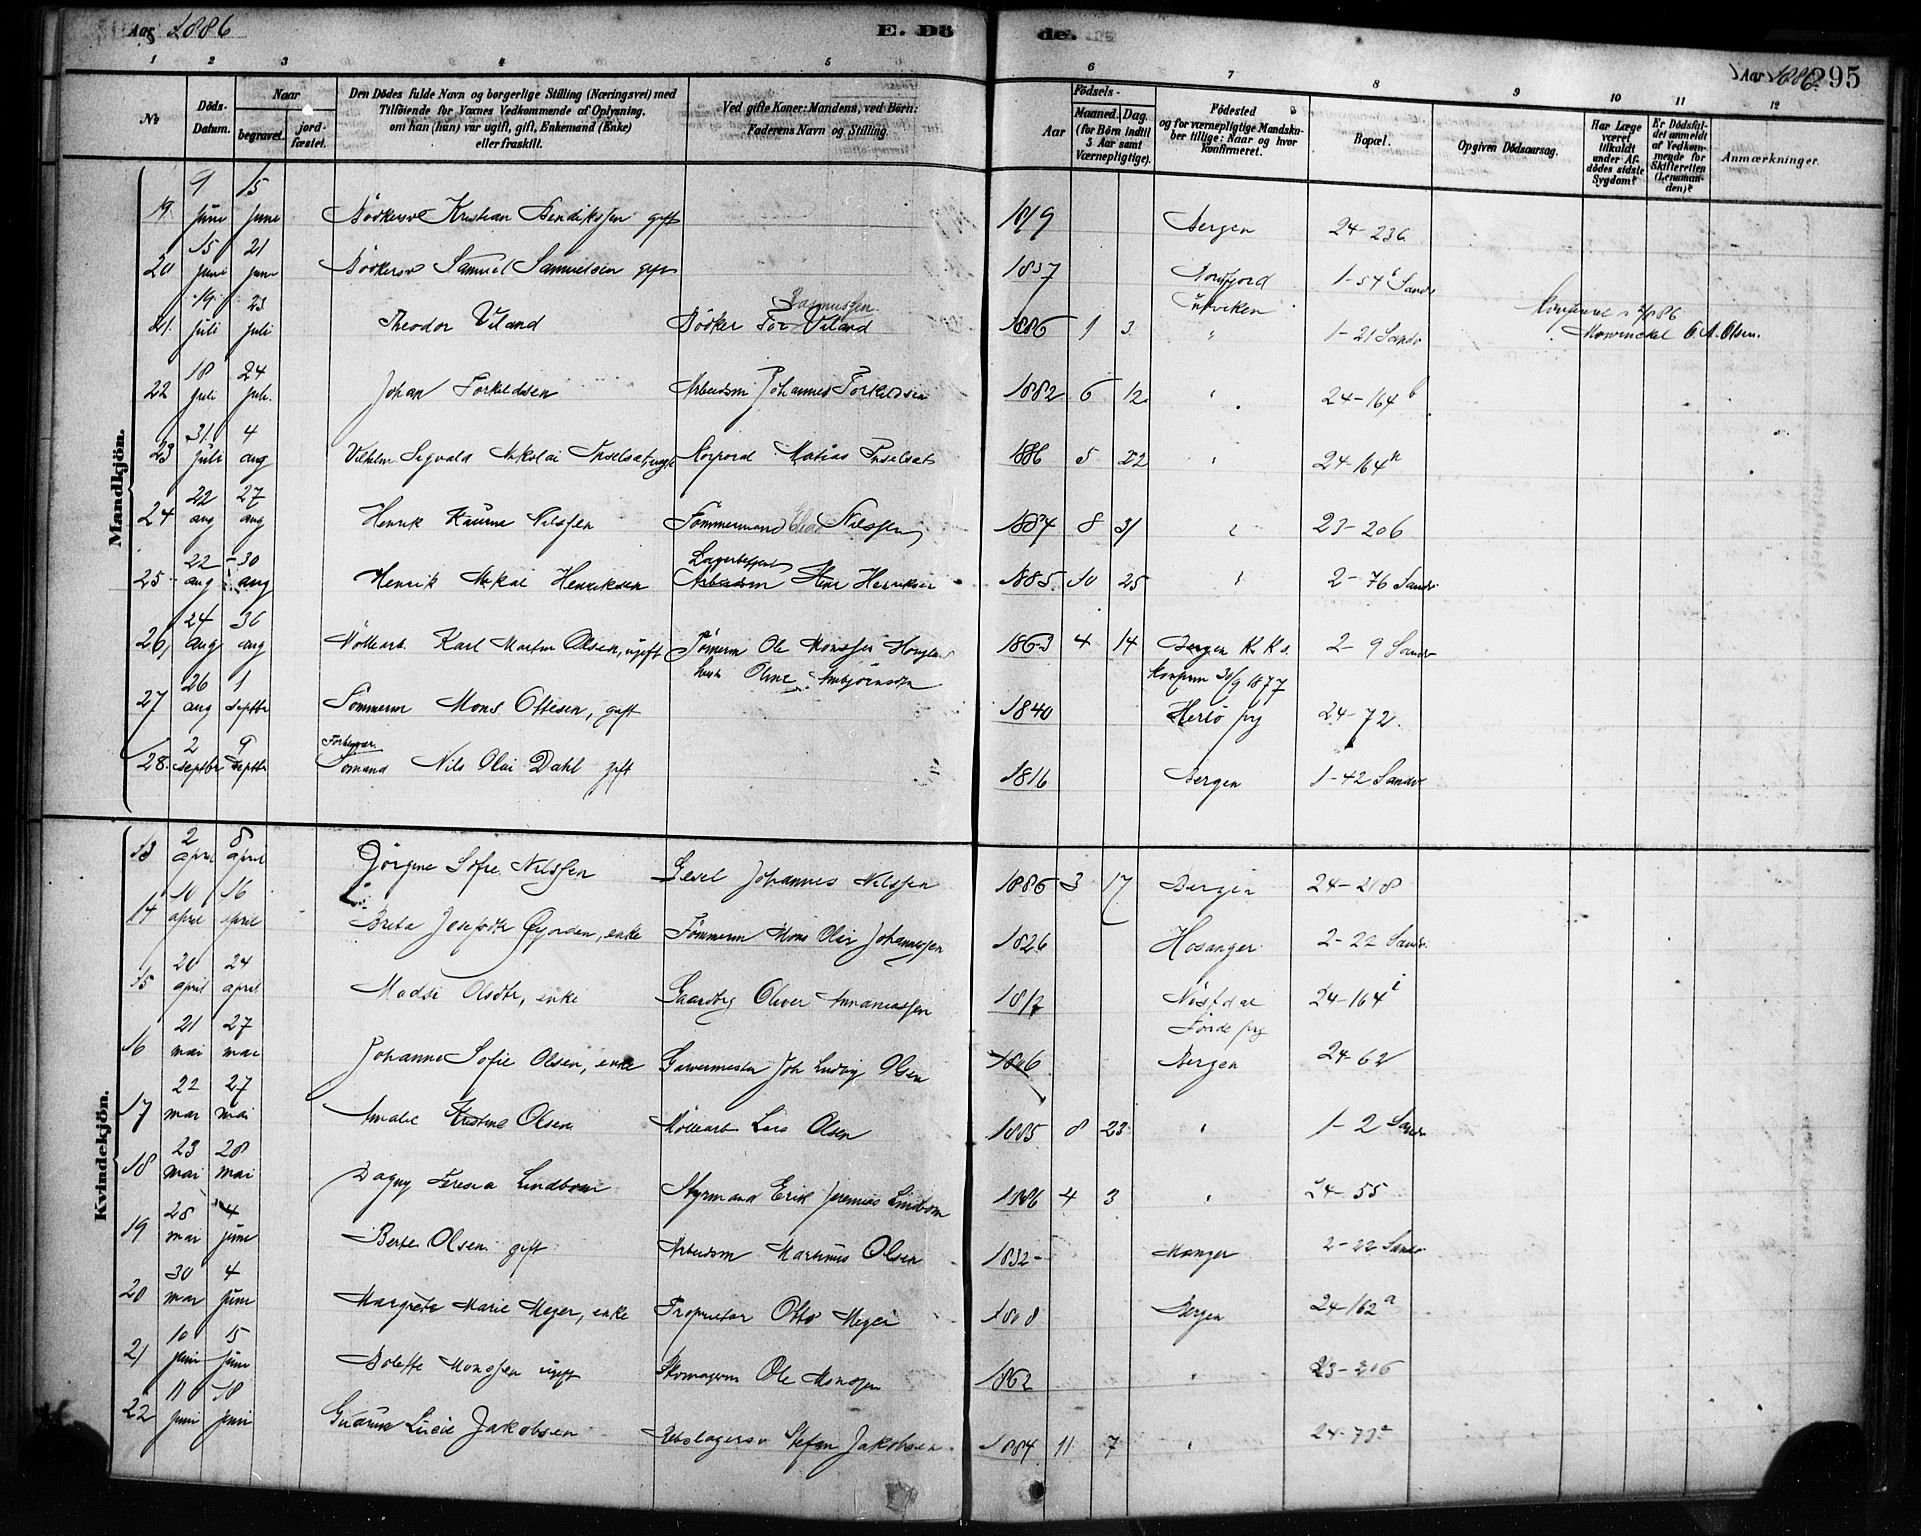 Aar 1886
E. Dö
de.
Aar 1886. 295
1 2 3 4 5 6 7 8 9 10 11 12
No
Döds-Datum.
Naar
begravet.
jord-fæstet.
Den Dödes fulde Navn og borgerlige Stilling (Næringsvei) med
Tilföiende for Voxnes Vedkommende af Oplysning,
om han (hun) var ugift, gift, Enkemand (Enke)
eller fraskilt.
Ved gifte Koner: Mandens, ved Börn:
Faderens Navn og Stilling.
Födsels-
Aar
Maaned. Dag.
(for Börn indtil
5 Aar samt
Værnepligtige).
Födested
og for værnepligtige Mandska-
ber tillige: Naar og hvor
konfirmeret.
Bopæl.
Opgiven Dödsaarsag.
Har Læge
været
tilkaldt
under Af-
dödes sidste
Sygdom?
Er Dödsfal-
det anmeldt
af Vedkom-
mende for
Skifteretten
(Lensman-
den)?
Anmærkninger.
Mandkjön.
19 9 juni 15 juni Bödkersv Kristian Hendriksen gift 1819 Bergen 24-236
20 15 juni 21 juni Bödkersv Samuel Samuelsen gift 1837 Nordfjord 1-54 Sandv
Utviken
21. 19 juli 23 juli Theodor Viland Bödker Tor Rasmussen Viland 1886 1 3 " 1-21 Sandv
Mowinckel O. A. Olsen.
22 18 juli 24 juli Johan Torkildsen Arbeidsm Johannes Torkildsen 1882 6 12 " 24-164 b
23 31 juli 4 aug Vilhelm Sigvald Nikolai Mathias 1886 5 22 " 24-164
24 22 aug 27 aug Henrik Nilssen Tömmermand Nilssen 1884 8 31 " 23-206
25 22 aug 30 aug Henrik Nikolai Henriksen Arbeidsm Henriksen 1885 10 25 " 2-76 Sandv
26, 24 aug 30 aug Möllearb. Karl Martin Olsen, ugift Tömerm Ole Monssen 1863 4 14 Bergen K. K. 2-9 Sandv
Oline konfirm 30/9 1877
27 26 aug 1 septbr Tömmerm Mons Ottesen, gift 1840 Herlö prg 24-72.
28. 2 septbr 9 septbr Sömand Nils Olai Dahl gift 1816 Bergen 1-42 Sandv
Kvindekjön.
13 2 april 8 april Jörgine Sofie Nilssen Gesel Johannes Nilssen 1886 3 17 Bergen 24-218
14 10 april 16 april Brita Josefsdtr enke Tömmerm Mons Olai Johannessen 1826 Hosanger 2-22 Sandv.
15 20 april 24 april Madsi Olsdtr, enke Gaardbrg Oliver Ananiassen 1812 24-164
Förde prg
16 21 mai 27 mai Johanne Sofie Olsen, enke Garvermester Joh Ludvig Olsen 1806 Bergen 24-62
17 22 mai 27 mai Amalie Kristine Olsen Möllearb Lars Olsen 1885 8 23 " 1-2 Sandv
18 23 mai 28 mai Dagny Teresia Lindbom Styrmand Erik Jeremias Lindbom 1886 4 3 " 24-55
19 28 mai 4 juni Berte Olsen gift Arbeidsm Martinus Olsen 1832 Manger 2-22 Sandv
20 30 mai 4 juni Margrete Marie Meyer, enke Proprietær Otto Meyer 1808 Bergen 24-162 a
21 10 juni 15 juni Bolette Monssen ugift Skomagerm Ole Monssen 1862 " 23-216
22 11 juni 18 juni Gudrun Lucie Jakobsen Rebslagersv Stefan Jakobsen 1884 11 7 " 24-79 a